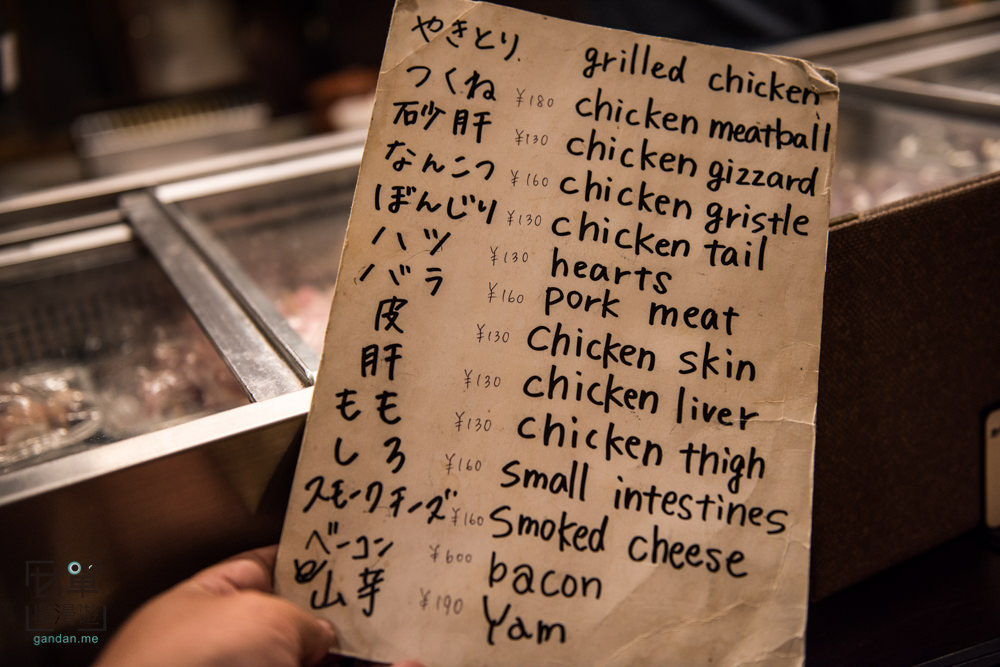 やきとり grilled chicken
つくね ¥180 chicken meatball
砂肝 ¥130 chicken gizzard
なんこつ ¥160 chicken gristle
ぼんじり ¥130 chicken tail
ハツ ¥130 hearts
バラ ¥160 pork meat
皮 ¥130 chicken skin
肝 ¥130 chicken liver
もも ¥130 chicken thigh
しろ ¥160 small intestines
スモークチーズ ¥160 Smoked cheese
ベーコン ¥600 bacon
山芋 ¥190 Yam
gandan.me